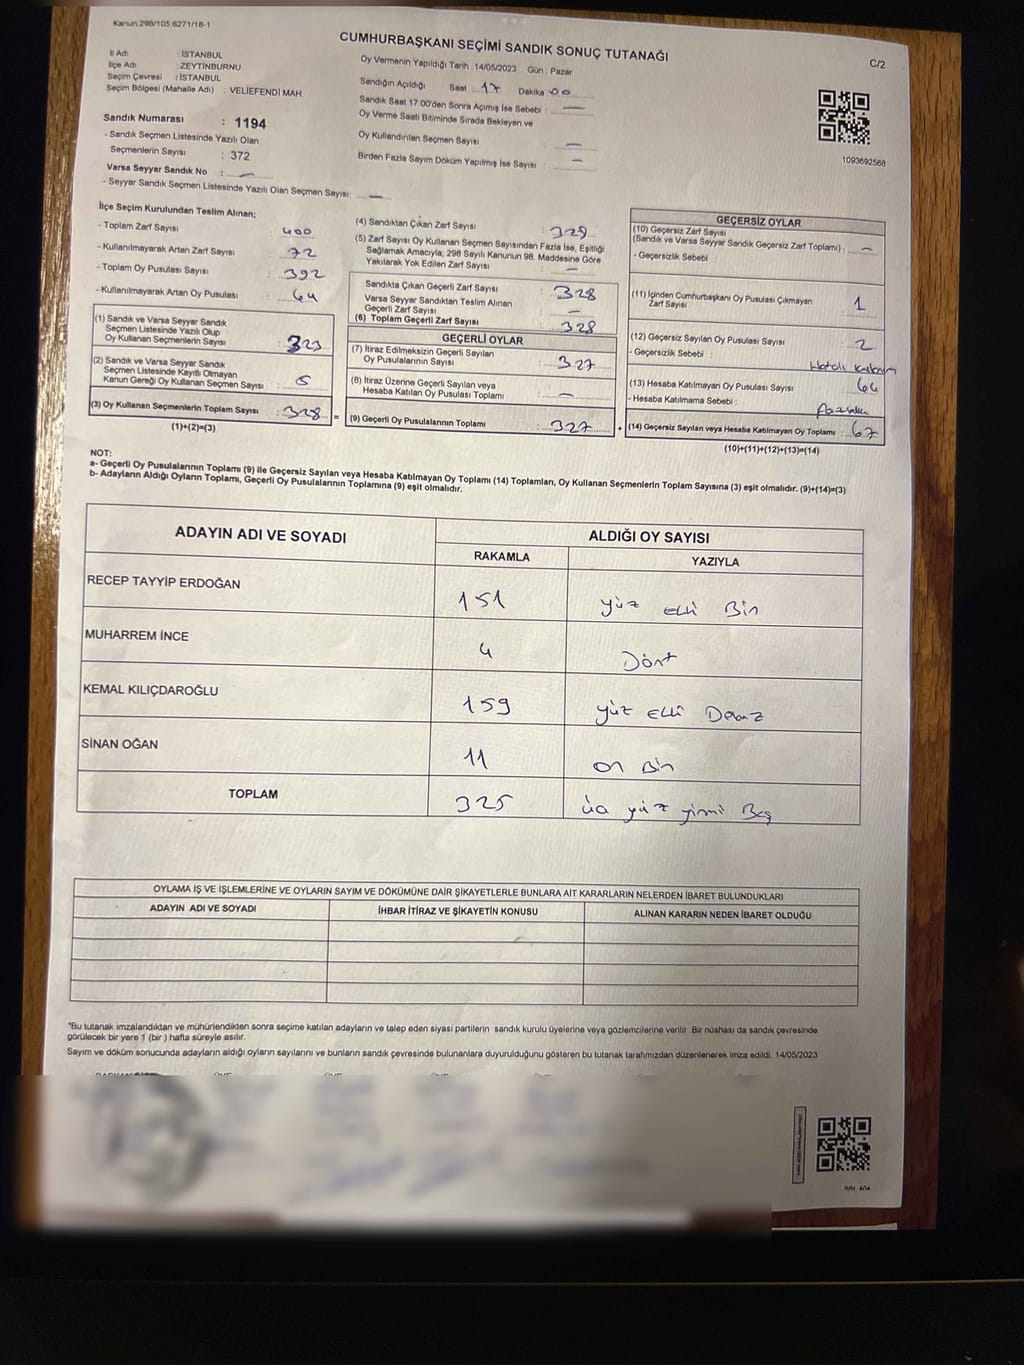 Kanun.298/105,6271/18-1
CUMHURBAŞKANI SEÇİMİ SANDIK SONUÇ TUTANAĞI
C/2
İl Adı : İSTANBUL
İlçe Adı : ZEYTİNBURNU
Seçim Çevresi : İSTANBUL
Seçim Bölgesi (Mahalle Adı) : VELİEFENDİ MAH.
Oy Vermenin Yapıldığı Tarih : 14/05/2023 Gün : Pazar
Sandığın Açıldığı Saat 17 Dakika 00
Sandık Saat 17:00'den Sonra Açımış İse Sebebi : —
Oy Verme Saati Bitiminde Sırada Bekleyen ve
Oy Kullandırılan Seçmen Sayısı : —
Birden Fazla Sayım Döküm Yapılmış İse Sayısı : —
1093692568
Sandık Numarası : 1194
- Sandık Seçmen Listesinde Yazılı Olan
Seçmenlerin Sayısı : 372
Varsa Seyyar Sandık No : —
- Seyyar Sandık Seçmen Listesinde Yazılı Olan Seçmen Sayısı: —
İlçe Seçim Kurulundan Teslim Alınan;
- Toplam Zarf Sayısı : 400
- Kullanılmayarak Artan Zarf Sayısı : 72
- Toplam Oy Pusulası Sayısı : 392
- Kullanılmayarak Artan Oy Pusulası : 64
(1) Sandık ve Varsa Seyyar Sandık
Seçmen Listesinde Yazılı Olup
Oy Kullanan Seçmenlerin Sayısı : 323
(2) Sandık ve Varsa Seyyar Sandık
Seçmen Listesinde Kayıtlı Olmayan
Kanun Gereği Oy Kullanan Seçmen Sayısı : 5
(3) Oy Kullanan Seçmenlerin Toplam Sayısı : 328 =
(1)+(2)=(3)
(4) Sandıktan Çıkan Zarf Sayısı : 329
(5) Zarf Sayısı Oy Kullanan Seçmen Sayısından Fazla İse, Eşitliği
Sağlamak Amacıyla; 298 Sayılı Kanunun 98. Maddesine Göre
Yakılarak Yok Edilen Zarf Sayısı : —
Sandıkta Çıkan Geçerli Zarf Sayısı : 328
Varsa Seyyar Sandıktan Teslim Alınan
Geçerli Zarf Sayısı : —
(6) Toplam Geçerli Zarf Sayısı : 328
GEÇERLİ OYLAR
(7) İtiraz Edilmeksizin Geçerli Sayılan
Oy Pusulalarının Sayısı : 327
(8) İtiraz Üzerine Geçerli Sayılan veya
Hesaba Katılan Oy Pusulası Toplamı : —
(9) Geçerli Oy Pusulalarının Toplamı : 327 +
GEÇERSİZ OYLAR
(10) Geçersiz Zarf Sayısı
(Sandık ve Varsa Seyyar Sandık Geçersiz Zarf Toplamı) : —
- Geçersizlik Sebebi :
(11) İçinden Cumhurbaşkanı Oy Pusulası Çıkmayan
Zarf Sayısı : 1
(12) Geçersiz Sayılan Oy Pusulası Sayısı : 2
- Geçersizlik Sebebi : Hatalı
(13) Hesaba Katılmayan Oy Pusulası Sayısı : 64
- Hesaba Katılmama Sebebi :
(14) Geçersiz Sayılan veya Hesaba Katılmayan Oy Toplamı : 67
(10)+(11)+(12)+(13)=(14)
NOT:
a- Geçerli Oy Pusulalarının Toplamı (9) ile Geçersiz Sayılan veya Hesaba Katılmayan Oy Toplamı (14) Toplamları, Oy Kullanan Seçmenlerin Toplam Sayısına (3) eşit olmalıdır. (9)+(14)=(3)
b- Adayların Aldığı Oyların Toplamı, Geçerli Oy Pusulalarının Toplamına (9) eşit olmalıdır.
ADAYIN ADI VE SOYADI ALDIĞI OY SAYISI
RAKAMLA YAZIYLA
RECEP TAYYİP ERDOĞAN 151 yüz elli Bin
MUHARREM İNCE 4 Dört
KEMAL KILIÇDAROĞLU 159 yüz elli Dokuz
SİNAN OĞAN 11 on Bin
TOPLAM 325 üç yüz yirmi Beş
OYLAMA İŞ VE İŞLEMLERİNE VE OYLARIN SAYIM VE DÖKÜMÜNE DAİR ŞİKAYETLERLE BUNLARA AİT KARARLARIN NELERDEN İBARET BULUNDUKLARI
ADAYIN ADI VE SOYADI İHBAR İTİRAZ VE ŞİKAYETİN KONUSU ALINAN KARARIN NEDEN İBARET OLDUĞU
*Bu tutanak imzalandıktan ve mühürlendikten sonra seçime katılan adayların ve talep eden siyasi partilerin sandık kurulu üyelerine veya gözlemcilerine verilir. Bir nüshası da sandık çevresinde
görülecek bir yere 1 (bir ) hafta süreyle asılır.
Sayım ve döküm sonucunda adayların aldığı oyların sayılarını ve bunların sandık çevresinde bulunanlara duyurulduğunu gösteren bu tutanak tarafımızdan düzenlenerek imza edildi. 14/05/2023